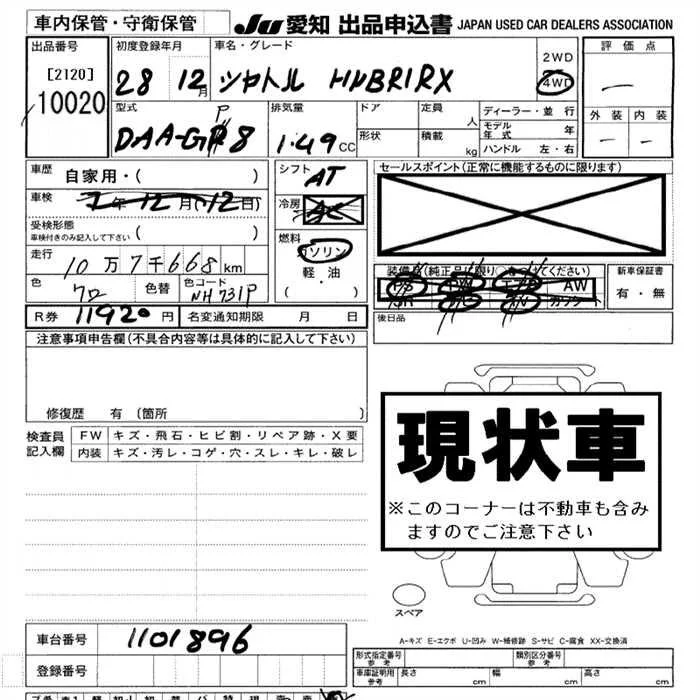 車内保管・守衛保管 JU 愛知 出品申込書 JAPAN USED CAR DEALERS ASSOCIATION
出品番号 初度登録年月 車名・グレード 2WD 評価点
[2120] 28 12月 シャトル HYBRIDX 4WD
10020 外装 内装
型式 排気量 ドア 定員 人 ディーラー・並行
DAA-GP8 1.49 CC 形状 積載 kg モデル年式 年
ハンドル 左・右
車歴 自家用・( ) シフト AT セールスポイント(正常に機能するものに限ります)
車検 年12月(12日) 冷房
受検形態 車検付きのみ記入して下さい ( )
燃料 ガソリン・軽・油 ( )
走行 10万7千668km
色 クロ 色替 色コード NH731P
装備品(純正品に限り○をつけてください) 新車保証書
PS PW AW 有・無
R券 11920円 名変通知期限 月 日 後日品
注意事項申告欄(不具合内容等は具体的に記入して下さい)
修復歴 有 (箇所 )
検査員記入欄 FW キズ・飛石・ヒビ割・リペア跡・X要
内装 キズ・汚レ・コゲ・穴・スレ・キレ・破レ
現状車
※このコーナーは不動車も含み
ますのでご注意下さい
スペア
A-キズ E-エクボ U-凹み W-補修跡 S-サビ C-腐食 XX-交換済
車台番号 1101896
登録番号
形式指定番号 参考 類別区分番号 参考
車庫証明用 参考 長さ cm 幅 cm 高さ cm